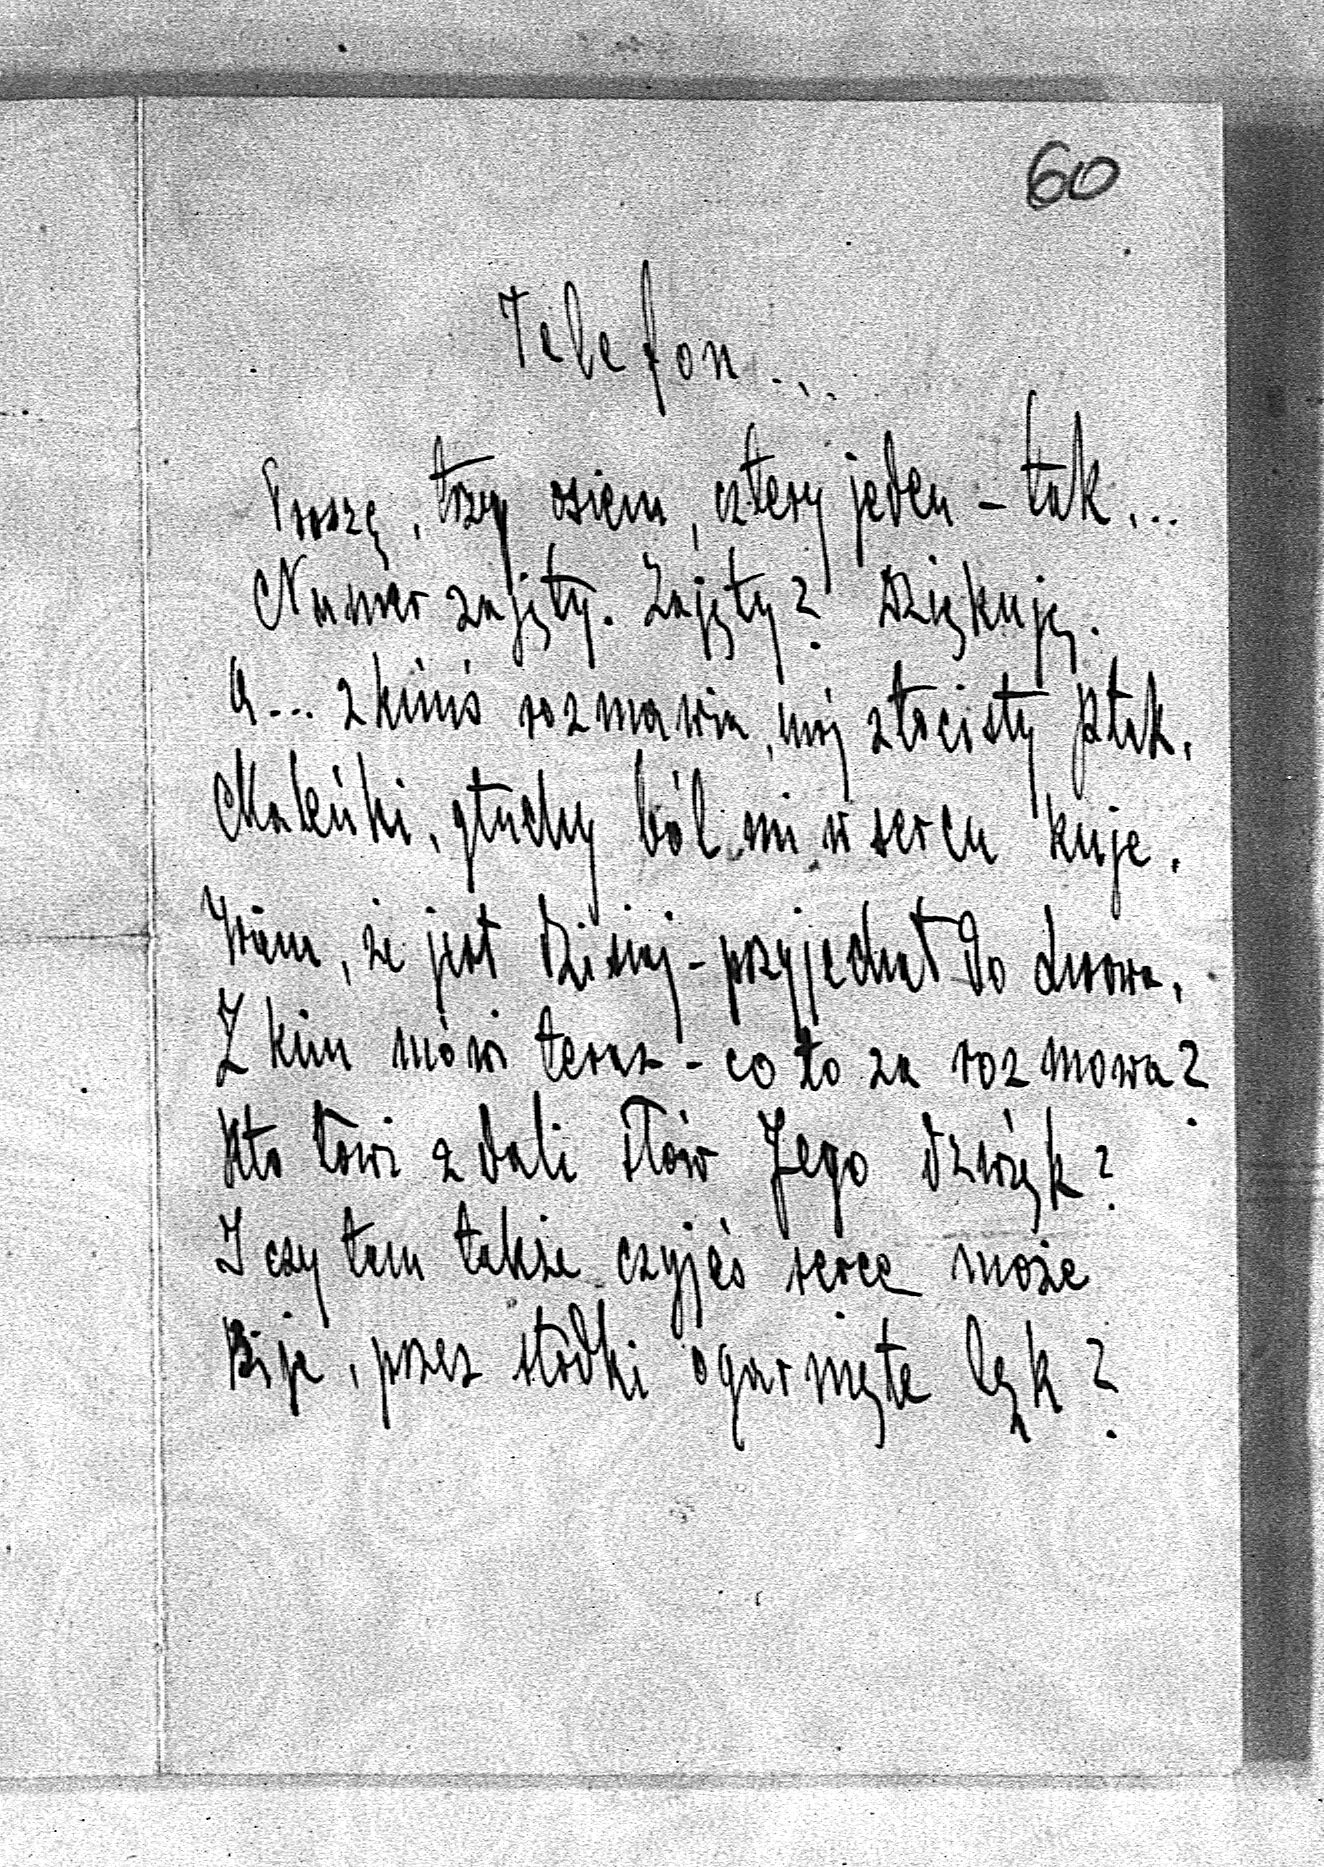 60
Telefon...
Proszę, trzy osiem, cztery jeden – tak...
Numer zajęty. Zajęty? Dziękuję.
A... z kimś rozmawia, mój złocisty ptak,
Maleńki, głuchy ból mi w sercu kuje.
Wiem, że jest dzisiaj – przyjechał do Lwowa,
Z kim mówi teraz – co to za rozmowa?
Kto łowi z dali słów Jego dźwięk?
I czy tam także czyjeś serce może
Bije, przez słodki ogarnięte lęk?